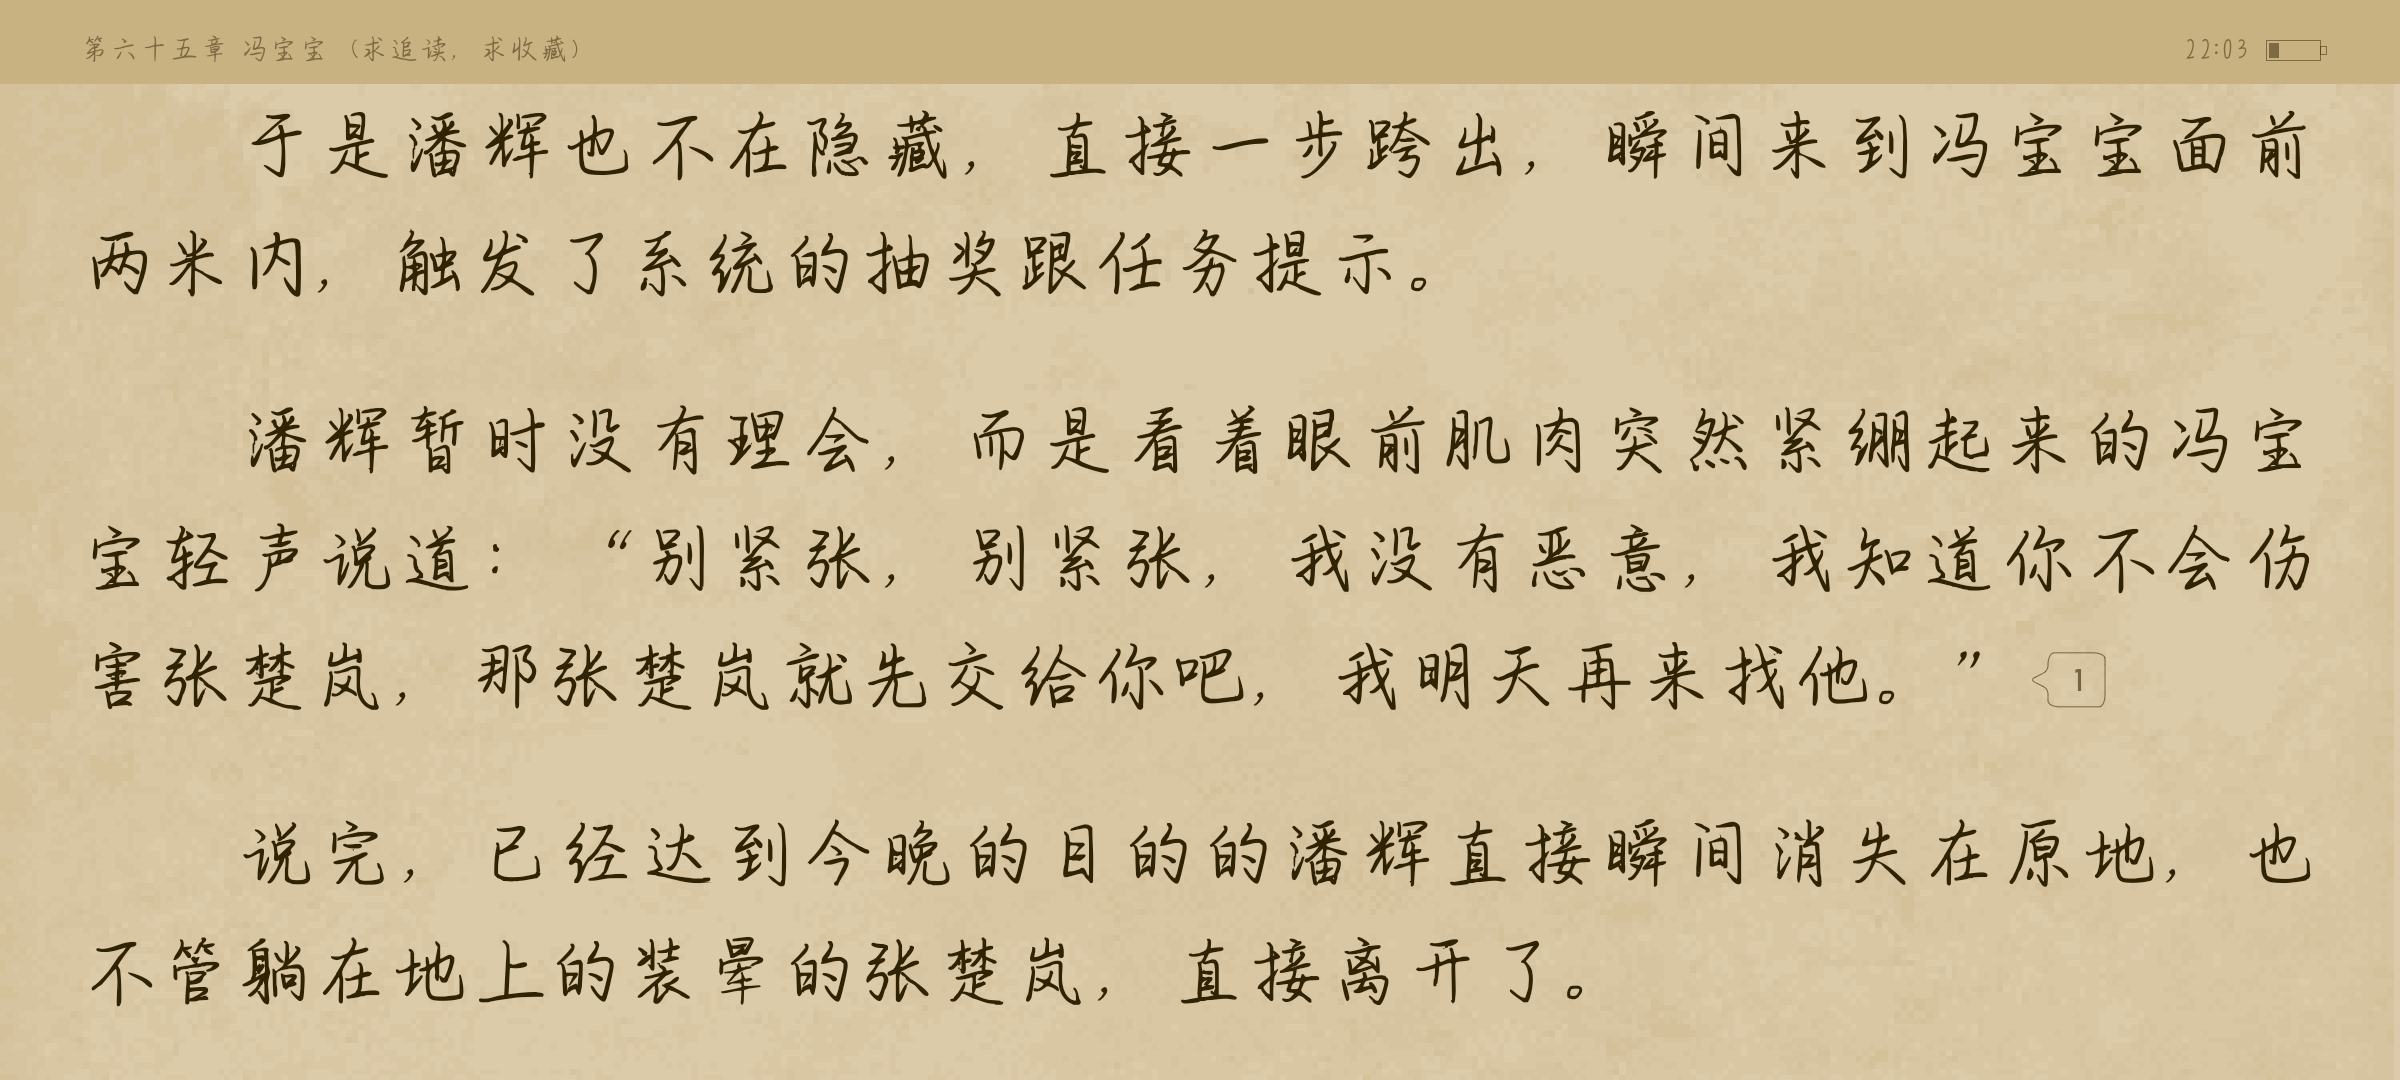 第六十五章 冯宝宝（求追读，求收藏）
22:03
于是潘辉也不在隐藏，直接一步跨出，瞬间来到冯宝宝面前
两米内，触发了系统的抽奖跟任务提示。
潘辉暂时没有理会，而是看着眼前肌肉突然紧绷起来的冯宝
宝轻声说道：“别紧张，别紧张，我没有恶意，我知道你不会伤
害张楚岚，那张楚岚就先交给你吧，我明天再来找他。”
1
说完，已经达到今晚的目的的潘辉直接瞬间消失在原地，也
不管躺在地上的装晕的张楚岚，直接离开了。